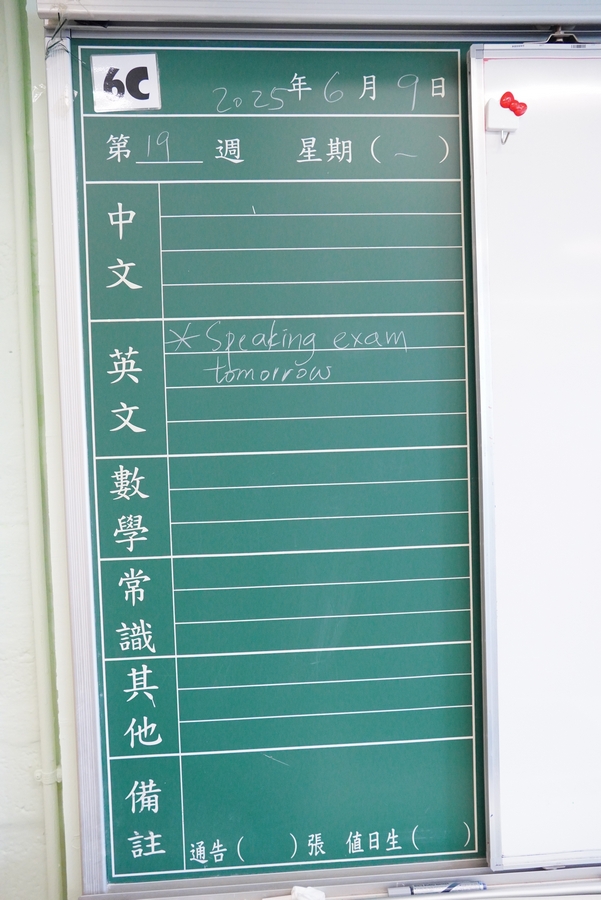 6C
2025年6月9日
第19週 星期(一)
中文
英文
* Speaking exam
tomorrow
數學
常識
其他
備註
通告( )張 值日生( )